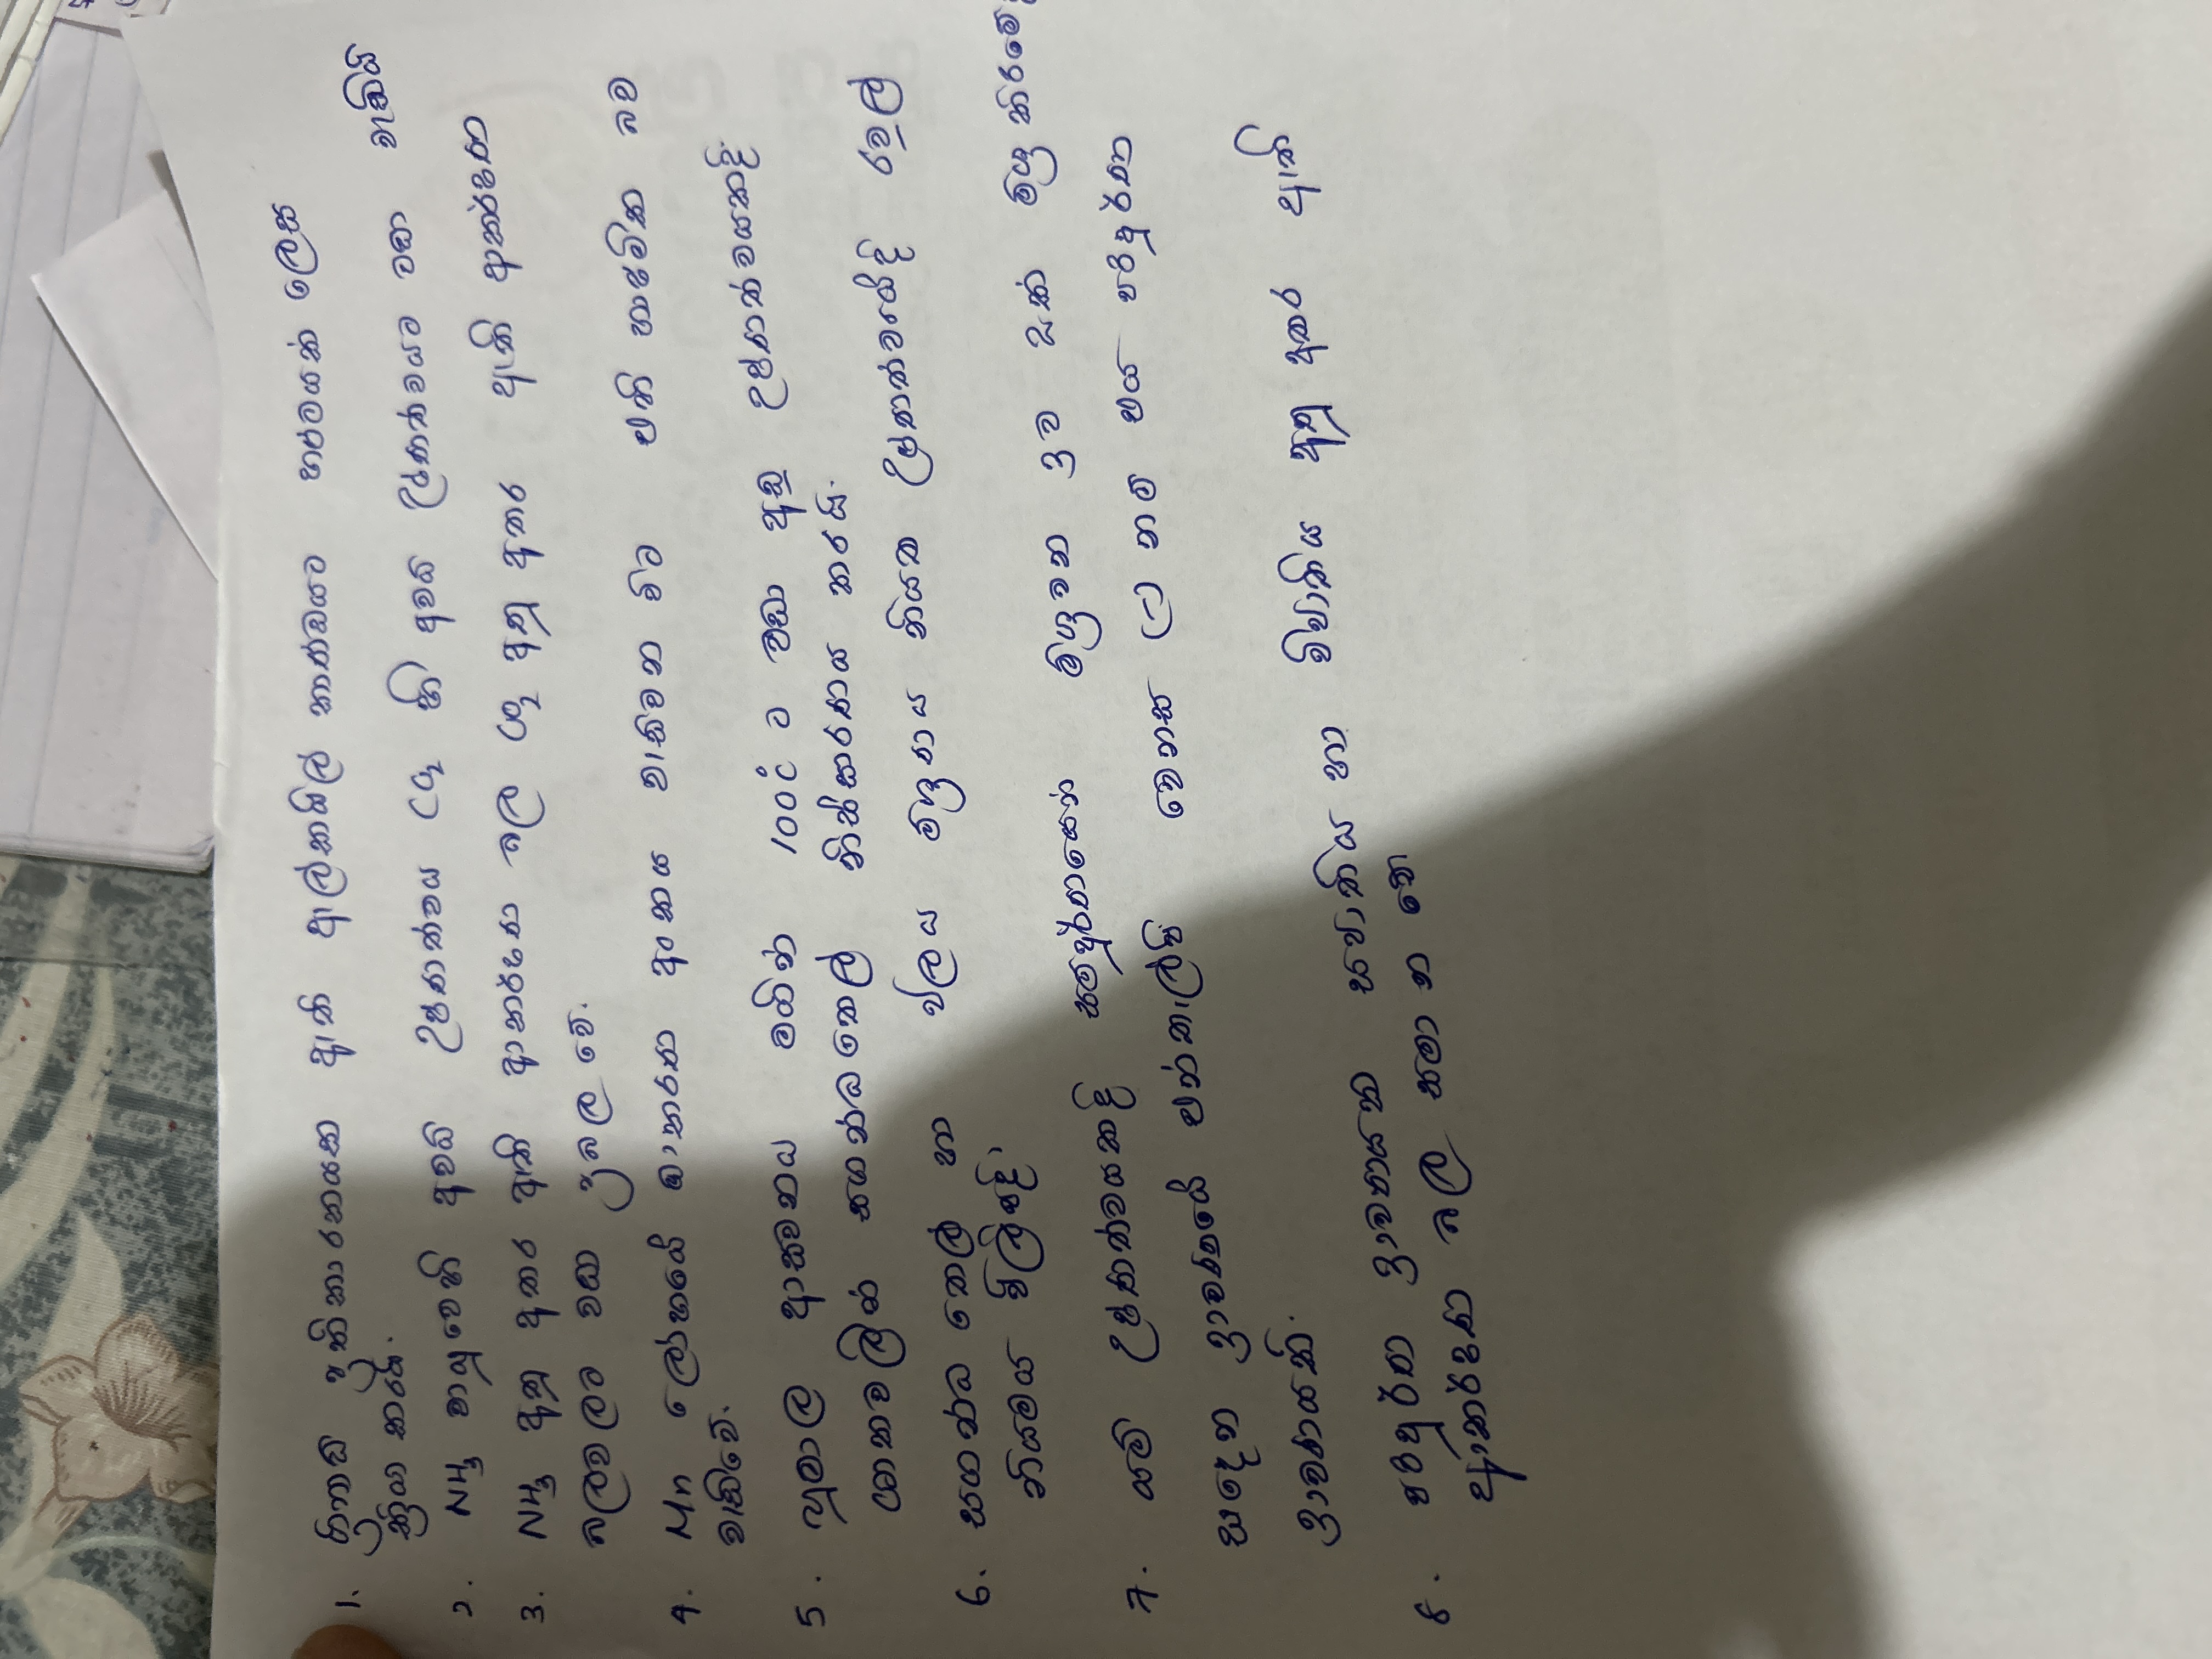 1. ග්‍රීනාඩ් ප්‍රතිකාරකයක ඇති ඇල්කයිල් කාණ්ඩයට භෂ්මයක් ලෙස
ක්‍රියා කරයි.
2. NH₃ වායුවෙහි අවධි උෂ්ණත්වය CO₂ හි අවධි උෂ්ණත්වයට වඩා වැඩියි
3. NH₃ අණු අතර ඇති ආකර්ෂණ බල CO₂ අණු අතර ඇති ආකර්ෂණ
බලවලට වඩා ප්‍රබල වේ.
4. Mn ලෝහයේ ඔක්සිකරණ අංකය වැඩිවන විට එහි භාෂ්මික බව
වැඩිවේ.
5. හුමාල ආසවනය මගින් 100°C ට වඩා අඩු උෂ්ණත්වයකදී
ශාකවලින් සගන්ධ තෙල් නිස්සාරණය කරයි.
6. සගන්ධ තෙල් හා ජලය මිශ්‍රණය නියත උෂ්ණත්වයේදී රවුල්
නියමය පිලිපදී
7. යම් උෂ්ණත්වයකදී සම්පූර්ණයෙන් මිශ්‍රවන ද්‍රව 2ක් මිශ්‍ර කිරීමේදී
සෑදෙන ද්‍රාවණයේ එන්තැල්පි වෙනස (-) නම් එය පරිපූර්ණ
ද්‍රාවණයකි.
8. පරිපූර්ණ ද්‍රාවනයක සජාතිය හා විජාතිය අණු අතර ඇති
ආකර්ෂණ බල සමාන වේ